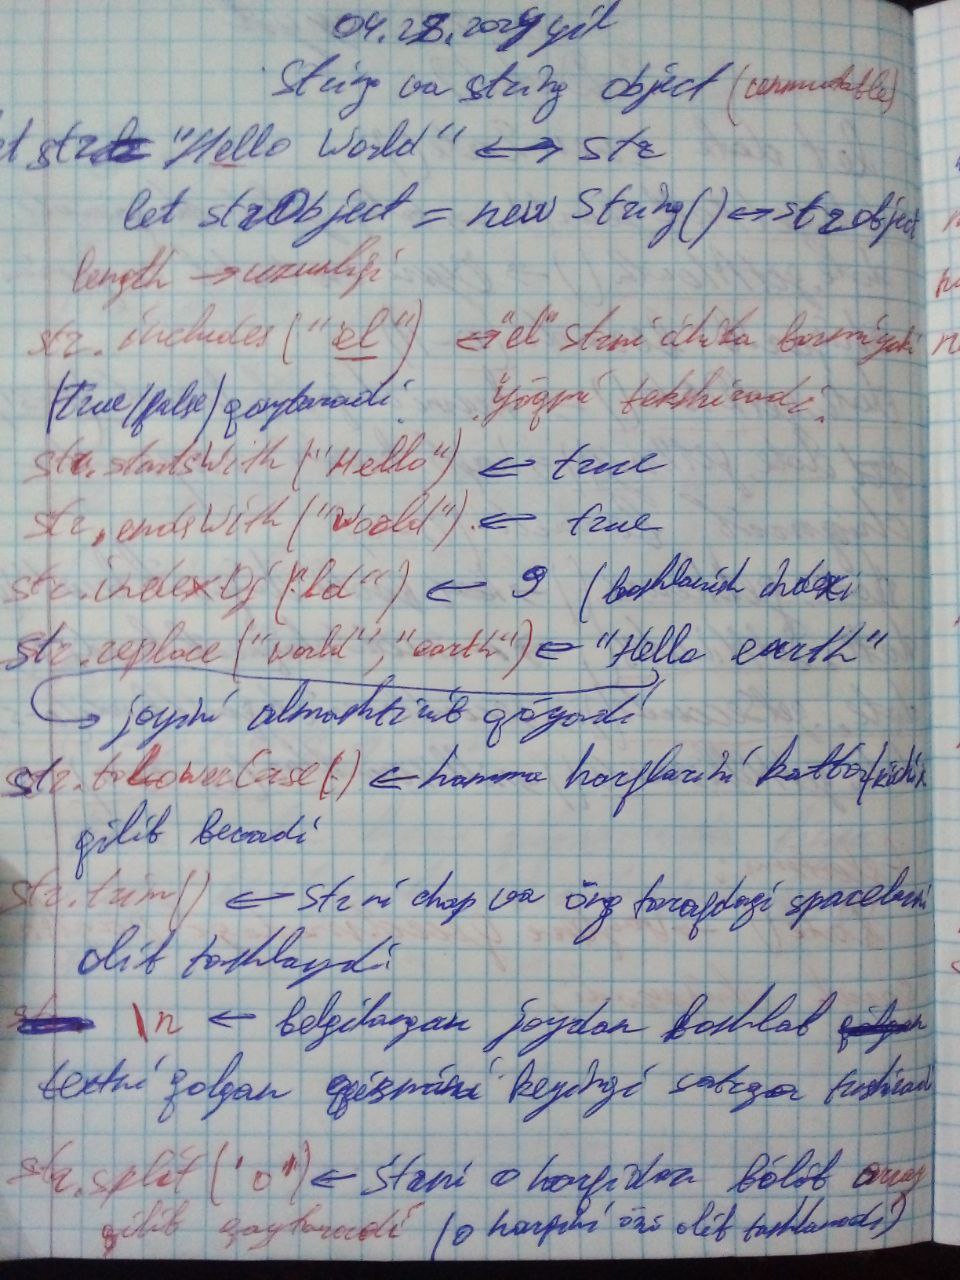 String va string object
"Hello World" ↔ str
let strObject = new String() ↔ strObject
length → uzunligi
str.includes("el") ↔ "el" strni ichida bormi yoki
(true/false) qaytaradi. yo'qmi tekshiradi.
str.startsWith("Hello") ← true
str.endsWith("World") ← true
str.indexOf("ld") ← 9 (boshlanish indexi
str.replace("World", "earth") ← "Hello earth"
→ joyini almashtirib qo'yadi
str.toLowerCase() ← hamma harflarini katta/kichik
qilib beradi
str.trim() ← strni chap va o'ng tarafdagi spacelarni
olib tashlaydi
\n ← belgilangan joydan boshlab
textni qolgan qismini keyingi satrga tushiradi
str.split('o') ← strni o harfidan bo'lib array
qilib qaytaradi (o harfini o'zi olib tashlanadi)